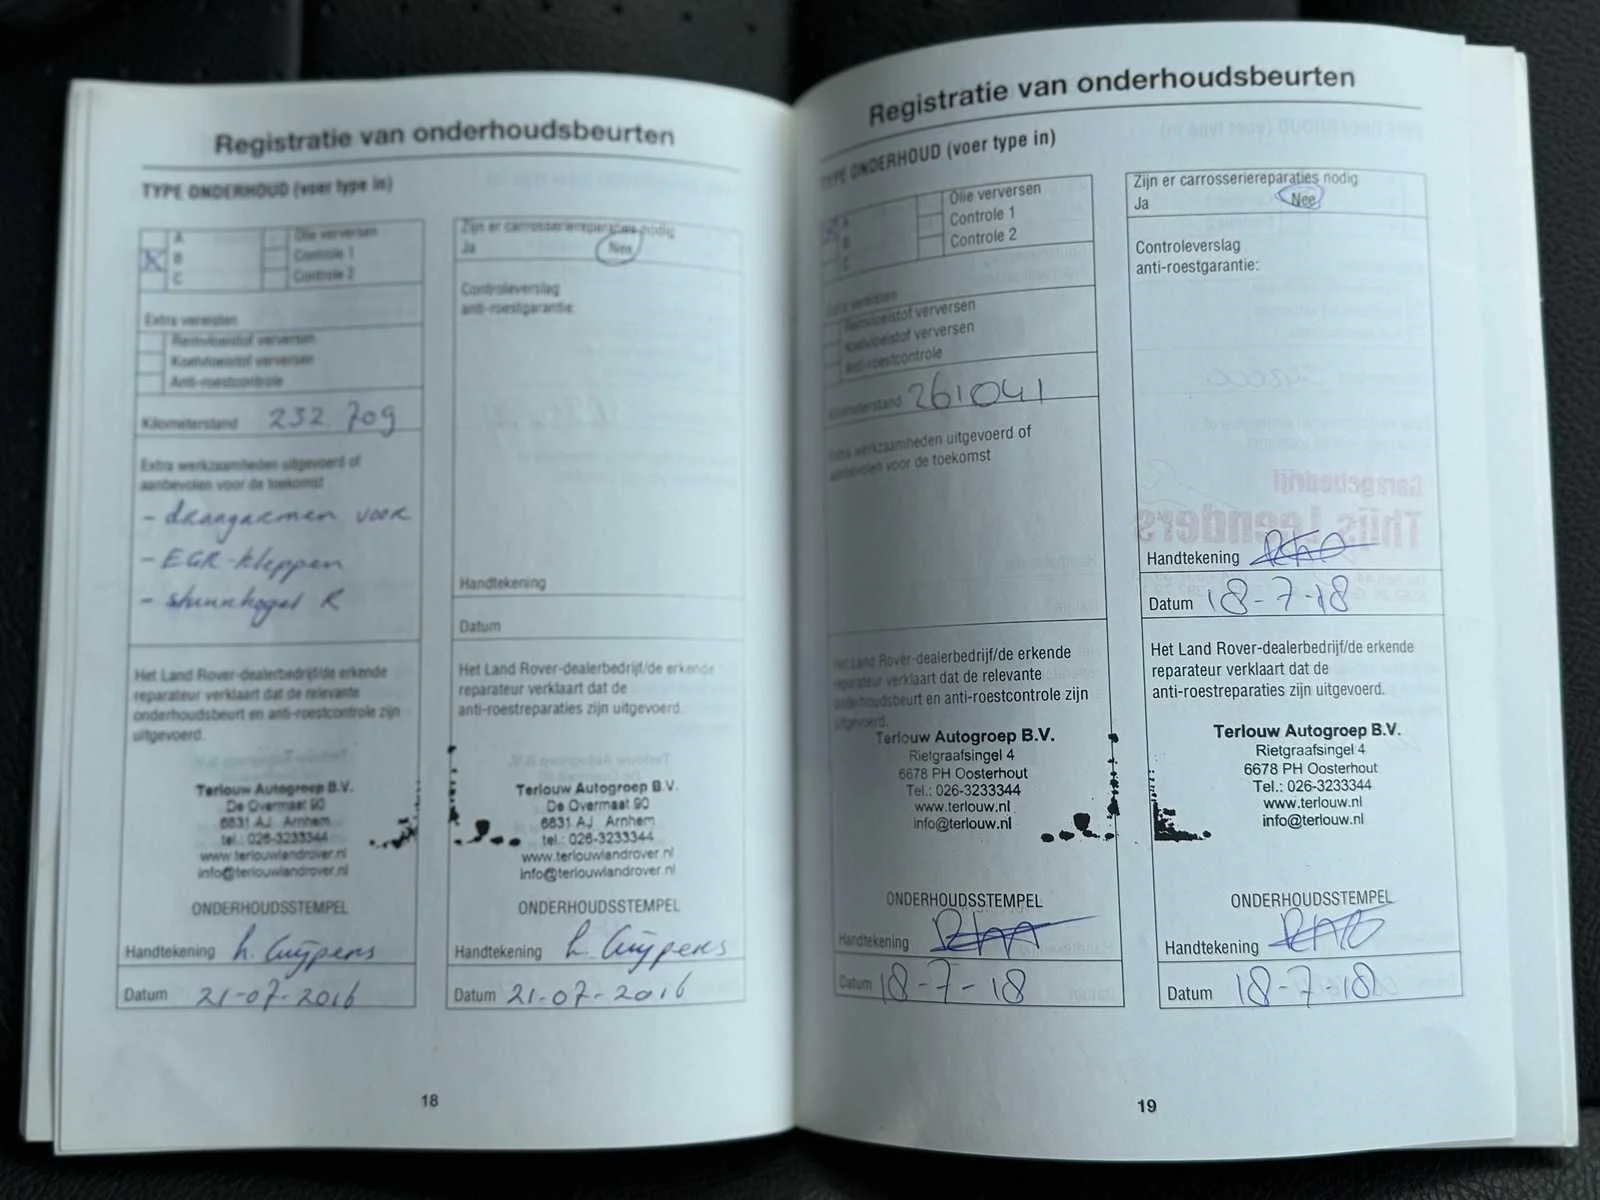 Registratie van onderhoudsbeurten
TYPE ONDERHOUD (voer type in)
A
B
C
Olie verversen
Controle 1
Controle 2
Extra vereisten
Remvloeistof verversen
Koelvloeistof verversen
Anti-roestcontrole
Kilometerstand 232.709
Extra werkzaamheden uitgevoerd of
aanbevolen voor de toekomst
- draagarmen voor
- EGR-kleppen
- stuurkogel R
Het Land Rover-dealerbedrijf/de erkende
reparateur verklaart dat de relevante
onderhoudsbeurt en anti-roestcontrole zijn
uitgevoerd.
Terlouw Autogroep B.V.
De Overmaat 90
6831 AJ Arnhem
tel.: 026-3233344
www.terlouwlandrover.nl
info@terlouwlandrover.nl
ONDERHOUDSSTEMPEL
Handtekening h. Cuijpers
Datum 21-07-2016
Zijn er carrosseriereparaties nodig
Ja Nee
Controleverslag
anti-roestgarantie:
Handtekening
Datum
Het Land Rover-dealerbedrijf/de erkende
reparateur verklaart dat de
anti-roestreparaties zijn uitgevoerd.
Terlouw Autogroep B.V.
De Overmaat 90
6831 AJ Arnhem
tel.: 026-3233344
www.terlouwlandrover.nl
info@terlouwlandrover.nl
ONDERHOUDSSTEMPEL
Handtekening h. Cuijpers
Datum 21-07-2016
18
Registratie van onderhoudsbeurten
TYPE ONDERHOUD (voer type in)
A
B
C
Olie verversen
Controle 1
Controle 2
Extra vereisten
Remvloeistof verversen
Koelvloeistof verversen
Anti-roestcontrole
Kilometerstand 261041
Extra werkzaamheden uitgevoerd of
aanbevolen voor de toekomst
Het Land Rover-dealerbedrijf/de erkende
reparateur verklaart dat de relevante
onderhoudsbeurt en anti-roestcontrole zijn
uitgevoerd.
Terlouw Autogroep B.V.
Rietgraafsingel 4
6678 PH Oosterhout
Tel.: 026-3233344
www.terlouw.nl
info@terlouw.nl
ONDERHOUDSSTEMPEL
Handtekening
Datum 18-7-18
Zijn er carrosseriereparaties nodig
Ja Nee
Controleverslag
anti-roestgarantie:
Handtekening
Datum 18-7-18
Het Land Rover-dealerbedrijf/de erkende
reparateur verklaart dat de
anti-roestreparaties zijn uitgevoerd.
Terlouw Autogroep B.V.
Rietgraafsingel 4
6678 PH Oosterhout
Tel.: 026-3233344
www.terlouw.nl
info@terlouw.nl
ONDERHOUDSSTEMPEL
Handtekening
Datum 18-7-18
19